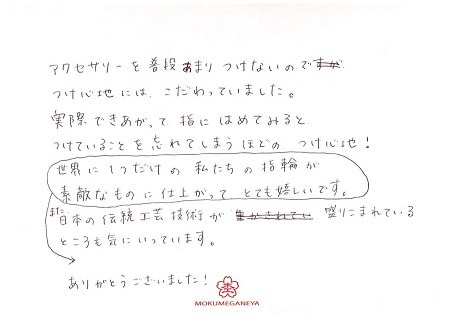 アクセサリーを普段あまりつけないので
つけ心地には、こだわっていました。
実際できあがって指にはめてみると
つけていることを忘れてしまうほどのつけ心地!
世界に1つだけの私たちの指輪が
素敵なものに仕上がってとても嬉しいです。
また日本の伝統工芸技術が盛りこまれている
ところも気にいっています。
ありがとうございました!
MOKUMEGANEYA